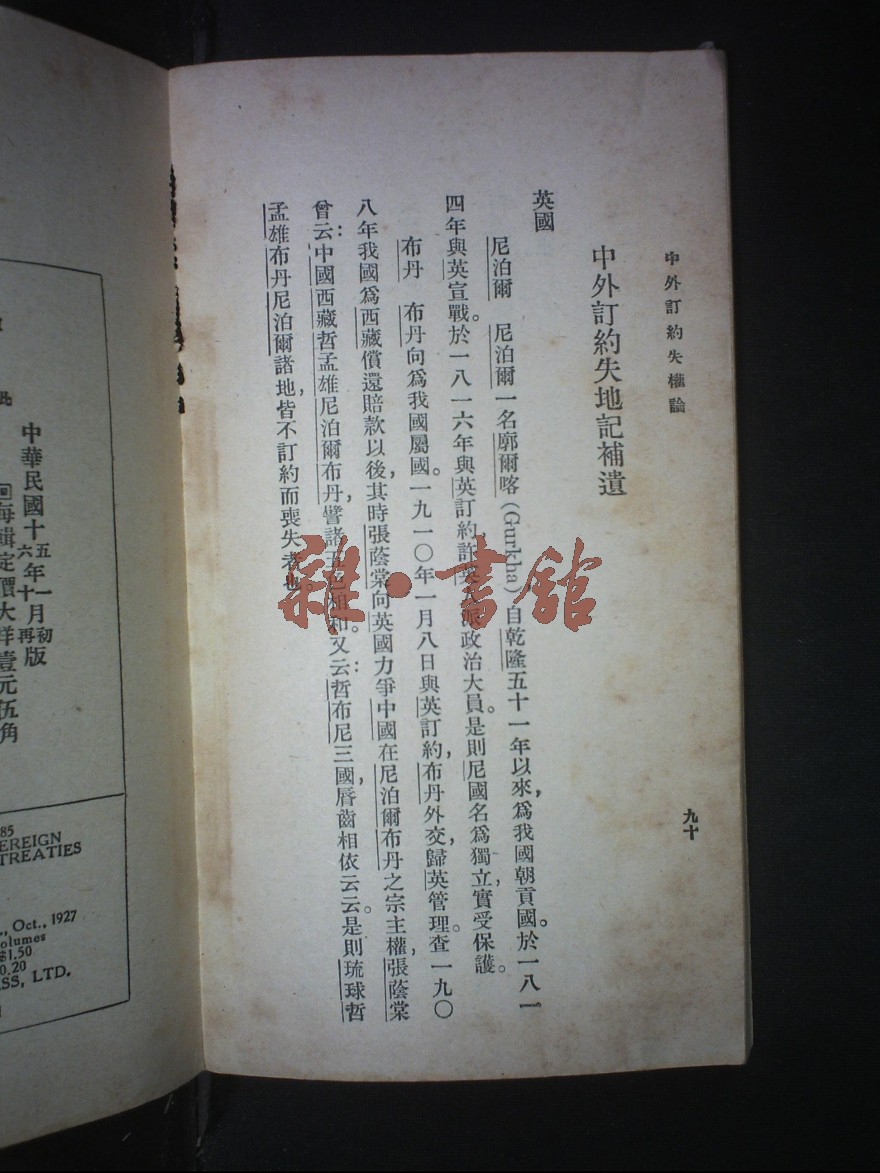 中外訂約失權論
九十
中外訂約失地記補遺
英國
尼泊爾　尼泊爾一名廓爾喀(Gurkha)自乾隆五十一年以來，爲我國朝貢國。於一八一
四年與英宣戰。於一八一六年與英訂約許英人派政治大員。是則尼國名爲獨立，實受保護。
布丹　布丹向爲我國屬國。一九一〇年一月八日與英訂約，布丹外交歸英管理。查一九〇
八年我國爲西藏償還賠款以後，其時張蔭棠向英國力爭中國在尼泊爾布丹之宗主權，張蔭棠
曾云：中國西藏哲孟雄尼泊爾布丹，譬諸五色相和。又云：哲布尼三國脣齒相依云云。是則琉球哲
孟雄布丹尼泊爾諸地皆不訂約而喪失者也。
雜·書館
中華民國十五年一月初版
六年十月再版
每輯定價大洋壹元伍角
85
EREIGN
TREATIES
., Oct., 1927
olumes
$1.50
0.20
SS, LTD.